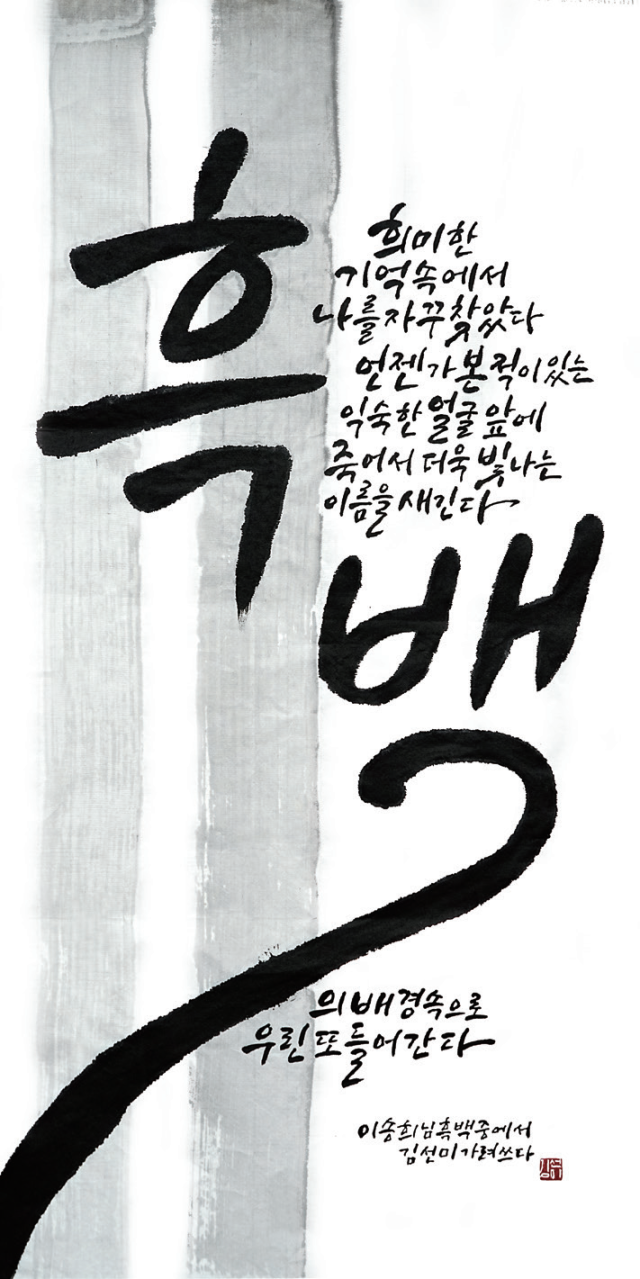 흑
희미한
기억속에서
나를 자꾸 찾았다
언젠가 본 적이 있는
익숙한 얼굴 앞에
죽어서 더욱 빛나는
이름을 새긴다
백
의 배경속으로
우린 또 들어간다
이송희님 흑백 중에서
김선미 가려쓰다